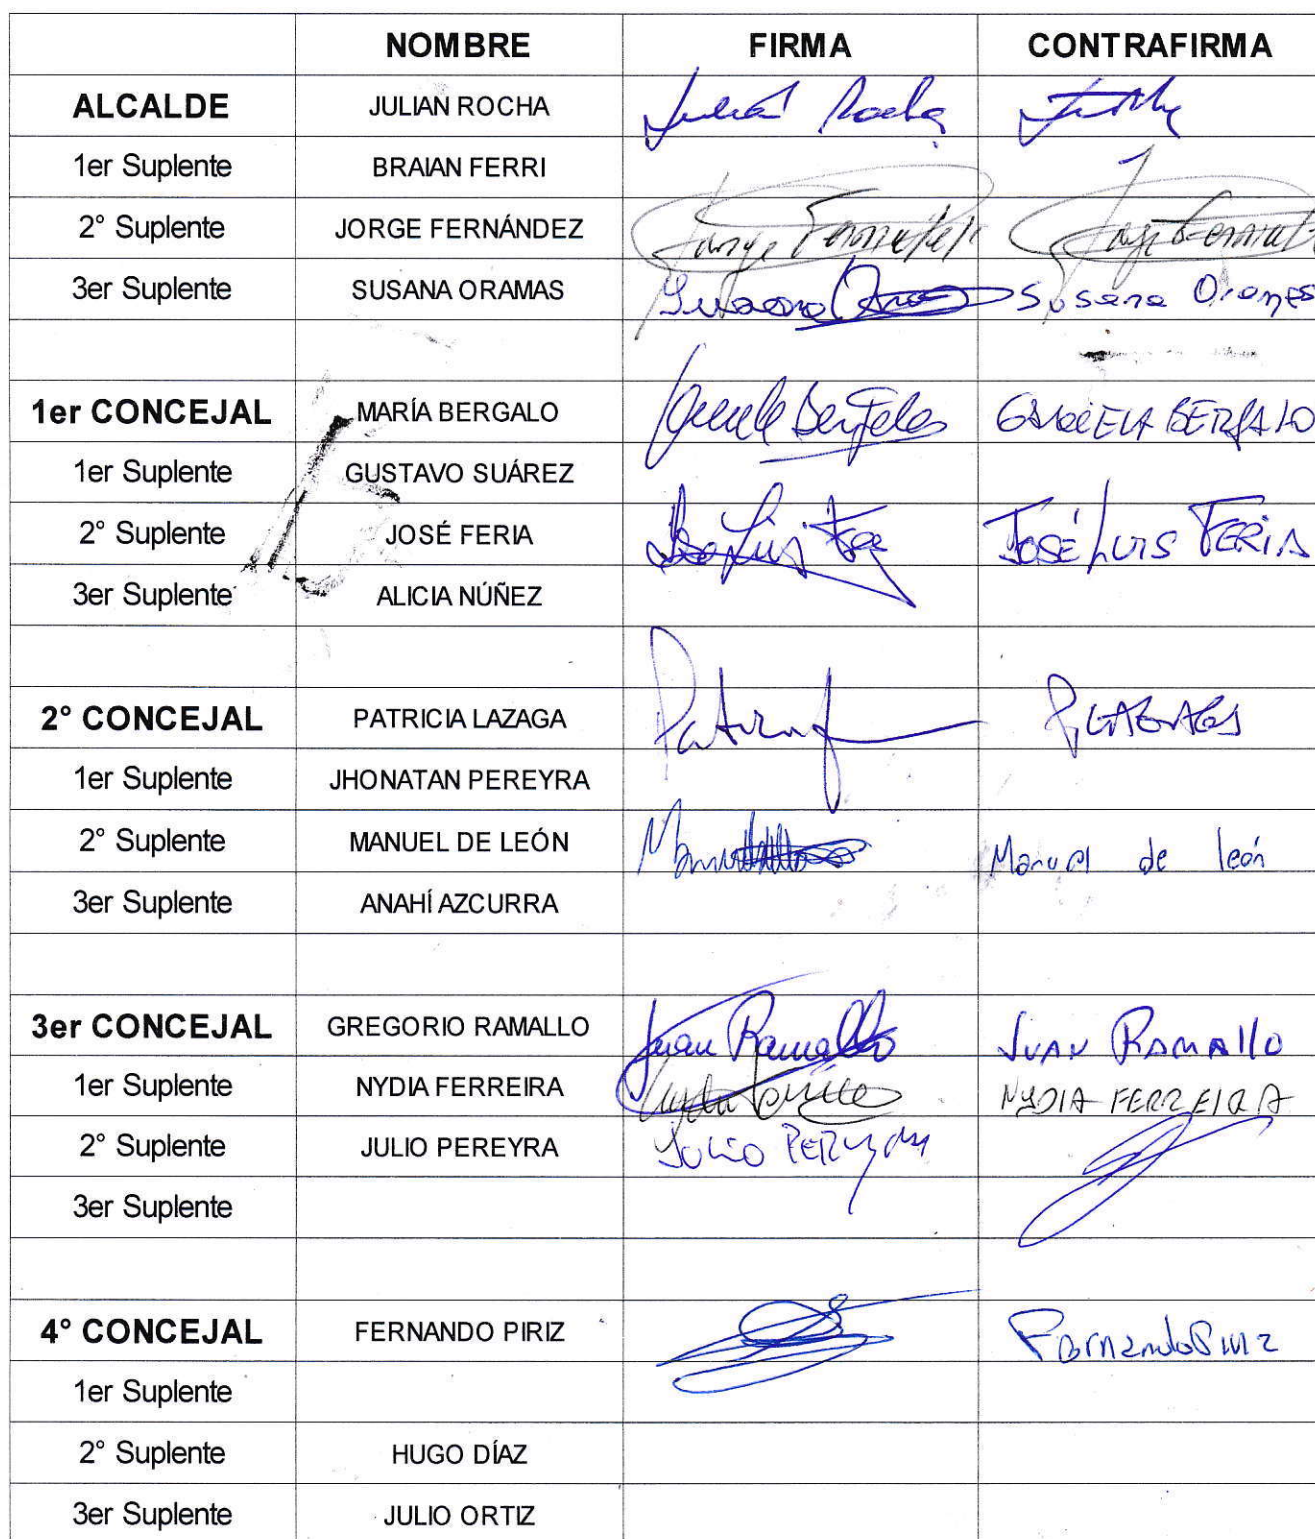 NOMBRE FIRMA CONTRAFIRMA
ALCALDE JULIAN ROCHA Julián Rocha
1er Suplente BRAIAN FERRI
2° Suplente JORGE FERNÁNDEZ Jorge Fernández Jorge Fernández
3er Suplente SUSANA ORAMAS Susana Susana Oramas
1er CONCEJAL MARÍA BERGALO GABRIELA BERGALO
1er Suplente GUSTAVO SUÁREZ
2° Suplente JOSÉ FERIA José Luis JOSÉ LUIS FERIA
3er Suplente ALICIA NÚÑEZ
2° CONCEJAL PATRICIA LAZAGA
1er Suplente JHONATAN PEREYRA
2° Suplente MANUEL DE LEÓN Manuel de león
3er Suplente ANAHÍ AZCURRA
3er CONCEJAL GREGORIO RAMALLO Juan Ramallo JUAN RAMALLO
1er Suplente NYDIA FERREIRA Nydia NYDIA FERREIRA
2° Suplente JULIO PEREYRA JULIO PEREYRA
3er Suplente
4° CONCEJAL FERNANDO PIRIZ Fernando Piriz
1er Suplente
2° Suplente HUGO DÍAZ
3er Suplente JULIO ORTIZ